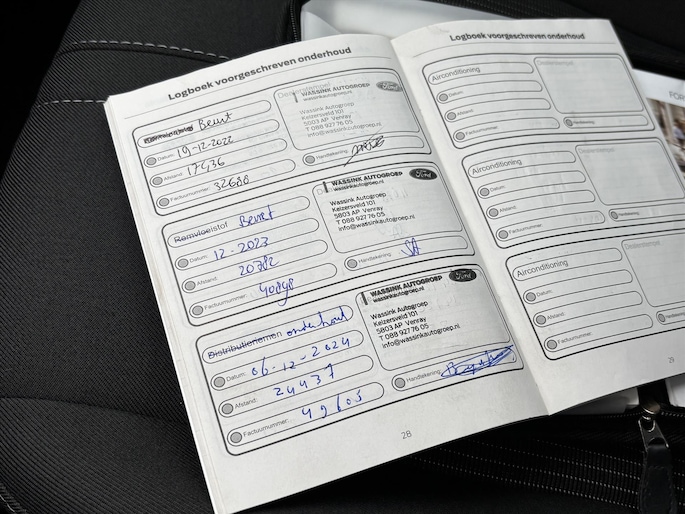 Logboek voorgeschreven onderhoud
Beurt
Datum: 19-12-2022
Afstand: 17436
Factuurnummer: 32688
WASSINK AUTOGROEP
wassinkautogroep.nl
Ford
Wassink Autogroep
Keizersveld 101
5803 AP Venray
T 088 927 76 05
info@wassinkautogroep.nl
Handtekening:
Remvloeistof Beurt
Datum: 12-2023
Afstand: 20782
Factuurnummer:
WASSINK AUTOGROEP
wassinkautogroep.nl
Ford
Wassink Autogroep
Keizersveld 101
5803 AP Venray
T 088 927 76 05
info@wassinkautogroep.nl
Handtekening:
Distributieriemen onderhoud
Datum: 06-12-2024
Afstand: 24437
Factuurnummer: 49605
WASSINK AUTOGROEP
wassinkautogroep.nl
Ford
Wassink Autogroep
Keizersveld 101
5803 AP Venray
T 088 927 76 05
info@wassinkautogroep.nl
Handtekening:
28
Logboek voorgeschreven onderhoud
Airconditioning
Datum:
Afstand:
Factuurnummer:
Dealerstempel
Handtekening:
Airconditioning
Datum:
Afstand:
Factuurnummer:
Dealerstempel
Handtekening:
Airconditioning
Datum:
Afstand:
Factuurnummer:
Dealerstempel
Handtekening:
29
FOR